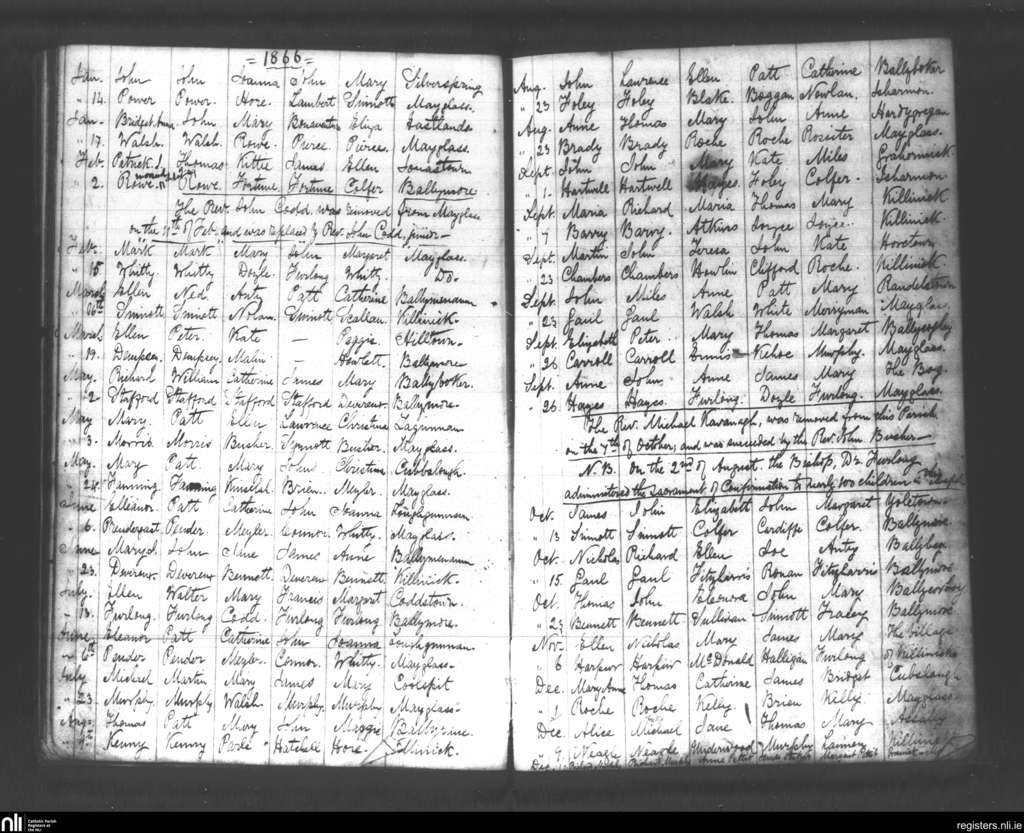 = 1866 =
Jan. John John Joanna John Mary Silverspring
" 14. Power Power. Hore. Lambert Sinnott Mayglass.
Jan- Bridget Anne John Mary Bonaventure Eliza Eastlands
" 17. Walsh. Walsh. Rowe. Pierce. Pierce. Mayglass.
Feb. Patrick J. Thomas Kittie James Ellen Jonastown
" 2. Rowe. Rowe. Fortune. Fortune Colfer Ballymore.
The Rev. John Codd was removed from Mayglass
on the of Feb. and was replaced by Rev. John Codd, junior-
Feb. Mark Mark Mary John Margaret Mayglass.
" 15. Whitty. Whitty Doyle. Furlong Whitty. Do.
March Ellen Ned. Anty Patt Catherine Ballymenann
" Sinnott Sinnott Nolan. Sinnott Scallan. Killinick.
March Ellen Peter. Kate - Peggie. Hilltown.
" 19. Dempsey. Dempsey. - Howlett. Ballymore.
May. Richard William Catherine James Mary Ballyboker.
" 2 Stafford Stafford Stafford Stafford Devereux- Ballymore.
May Mary. Patt Ellen Lawrence Christina
" 3. Morris Morris Busher. Synnott Busher. Mayglass.
May. Mary Patt. Mary John Christina Cubslough.
" 24. Fanning Fanning Kinselah Brien. Meyler. Mayglass.
June Elleanor Patt Catherine John Joanna Loughgunnan
" 6. Prendergast Pender. Meyler. Connor. Whitty. Mayglass.
June Mary J. John James Anne Ballymenann
" 23. Devereux. Devereux Bennett. Devereux Bennett. Killinick.
July. Ellen Walter Mary Francis Margaret Coddstown.
" 18. Furlong. Furlong Codd. Furlong Furlong. Ballymore.
June Eleanor Patt Catherine John Joanna Loughgunnan.
" 6th Pender Pender Meyler. Connor. Whitty. Mayglass-
July Michael Martin Mary James Mary Coolspit
" 23. Murphy. Murphy Walsh Murphy. Murphy Mayglass-
Aug. Thomas Patt Mary John Maggie
Kenny Kenny Parle Hatchell Hore. Killinick.
Aug. John Lawrence Ellen Patt Catherine Ballyboker
" 23 Foley Foley Blake. Boggan Nowlan. Isharmon.
Aug. Anne Thomas Mary John Anne Hardygregan
" 23 Brady Brady Roche Roche Rossiter Mayglass.
Sept. John John Mary Kate Miles Grahormick
" 1. Hartwell Hartwell Hayes. Foley Colfer. Isharmon.
Sept. Maria Richard Maria Thomas Mary Killinick
" 7 Barry Barry. Atkins Joyce Joyce. Killinick.
Sept. Martin John Teresa John Kate Horetown
" 23 Chambers Chambers Howlin Clifford Roche. Killinick.
Sept. John Miles Anne Patt Mary Randelstown
" 23 Gaul Gaul Walsh White Merryman Mayglass.
Sept. Elizabeth Peter. Mary Thomas Margaret
" 26 Carroll Carroll Ennis Kehoe Murphy. Mayglass.
Sept. Anne John. Anne James Mary The Bog.
" 26. Hayes Hayes. Furlong. Doyle Furlong. Mayglass.
The Rev. Michael Kavanagh, was removed from this Parish
on the 7th of October, and was succeeded by the Rev. John Busher-
N.B. On the 2nd of August the Bishop, Dr. Furlong
administered the Sacrament of Confirmation to nearly 200 children in
Oct. James John Elizabeth John Margaret Yoletown.
" 13 Sinnott Sinnott Colfer Cardiffe Colfer. Ballymore.
Oct. Nicholas Richard Ellen Joe Anty
" 15. Gaul Gaul Fitzharris Ronan Fitzharris Ballymore
Oct. Thomas John Eleonora John Mary
" 23 Bennett Bennett Sullivan Sinnott Tracey Ballymore.
Nov- Ellen Nicholas Mary James Mary The Village
" 6 Harpur Harpur McDonald Halligan Furlong of Killinick
Dec. Mary Anne Thomas Catherine James Bridget Cubslough
" 1 Roche Roche Kelly. Brien Kelly. Mayglass.
Dec. Alice Michael Jane Thomas Mary
" 9. Neagle Neagle Underwood Murphy Killinick
Dec.
nli
Catholic Parish
Registers at
the NLI
registers.nli.ie